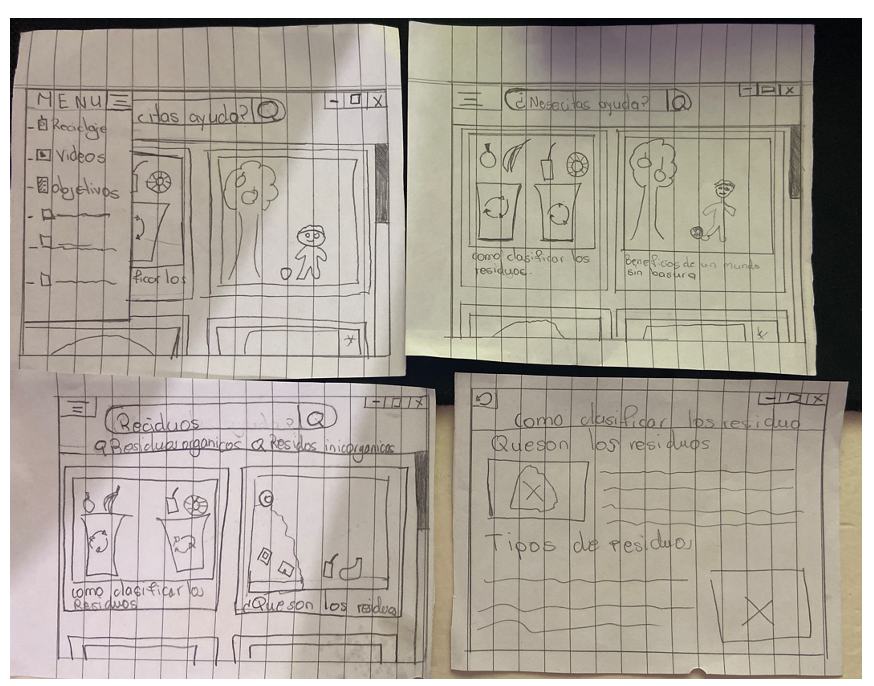 MENU
Reciclaje
Videos
Objetivos
citas ayuda?
ficar los
¿Nesecitas ayuda?
como clasificar los
residuos.
Beneficos de un mundo
sin basura
Reciduos
Residuos organicos Residos inicorganicos
como clasificar los
Residuos
¿Queson los residuo
Como clasificar los residuo
Queson los residuos
Tipos de residuos